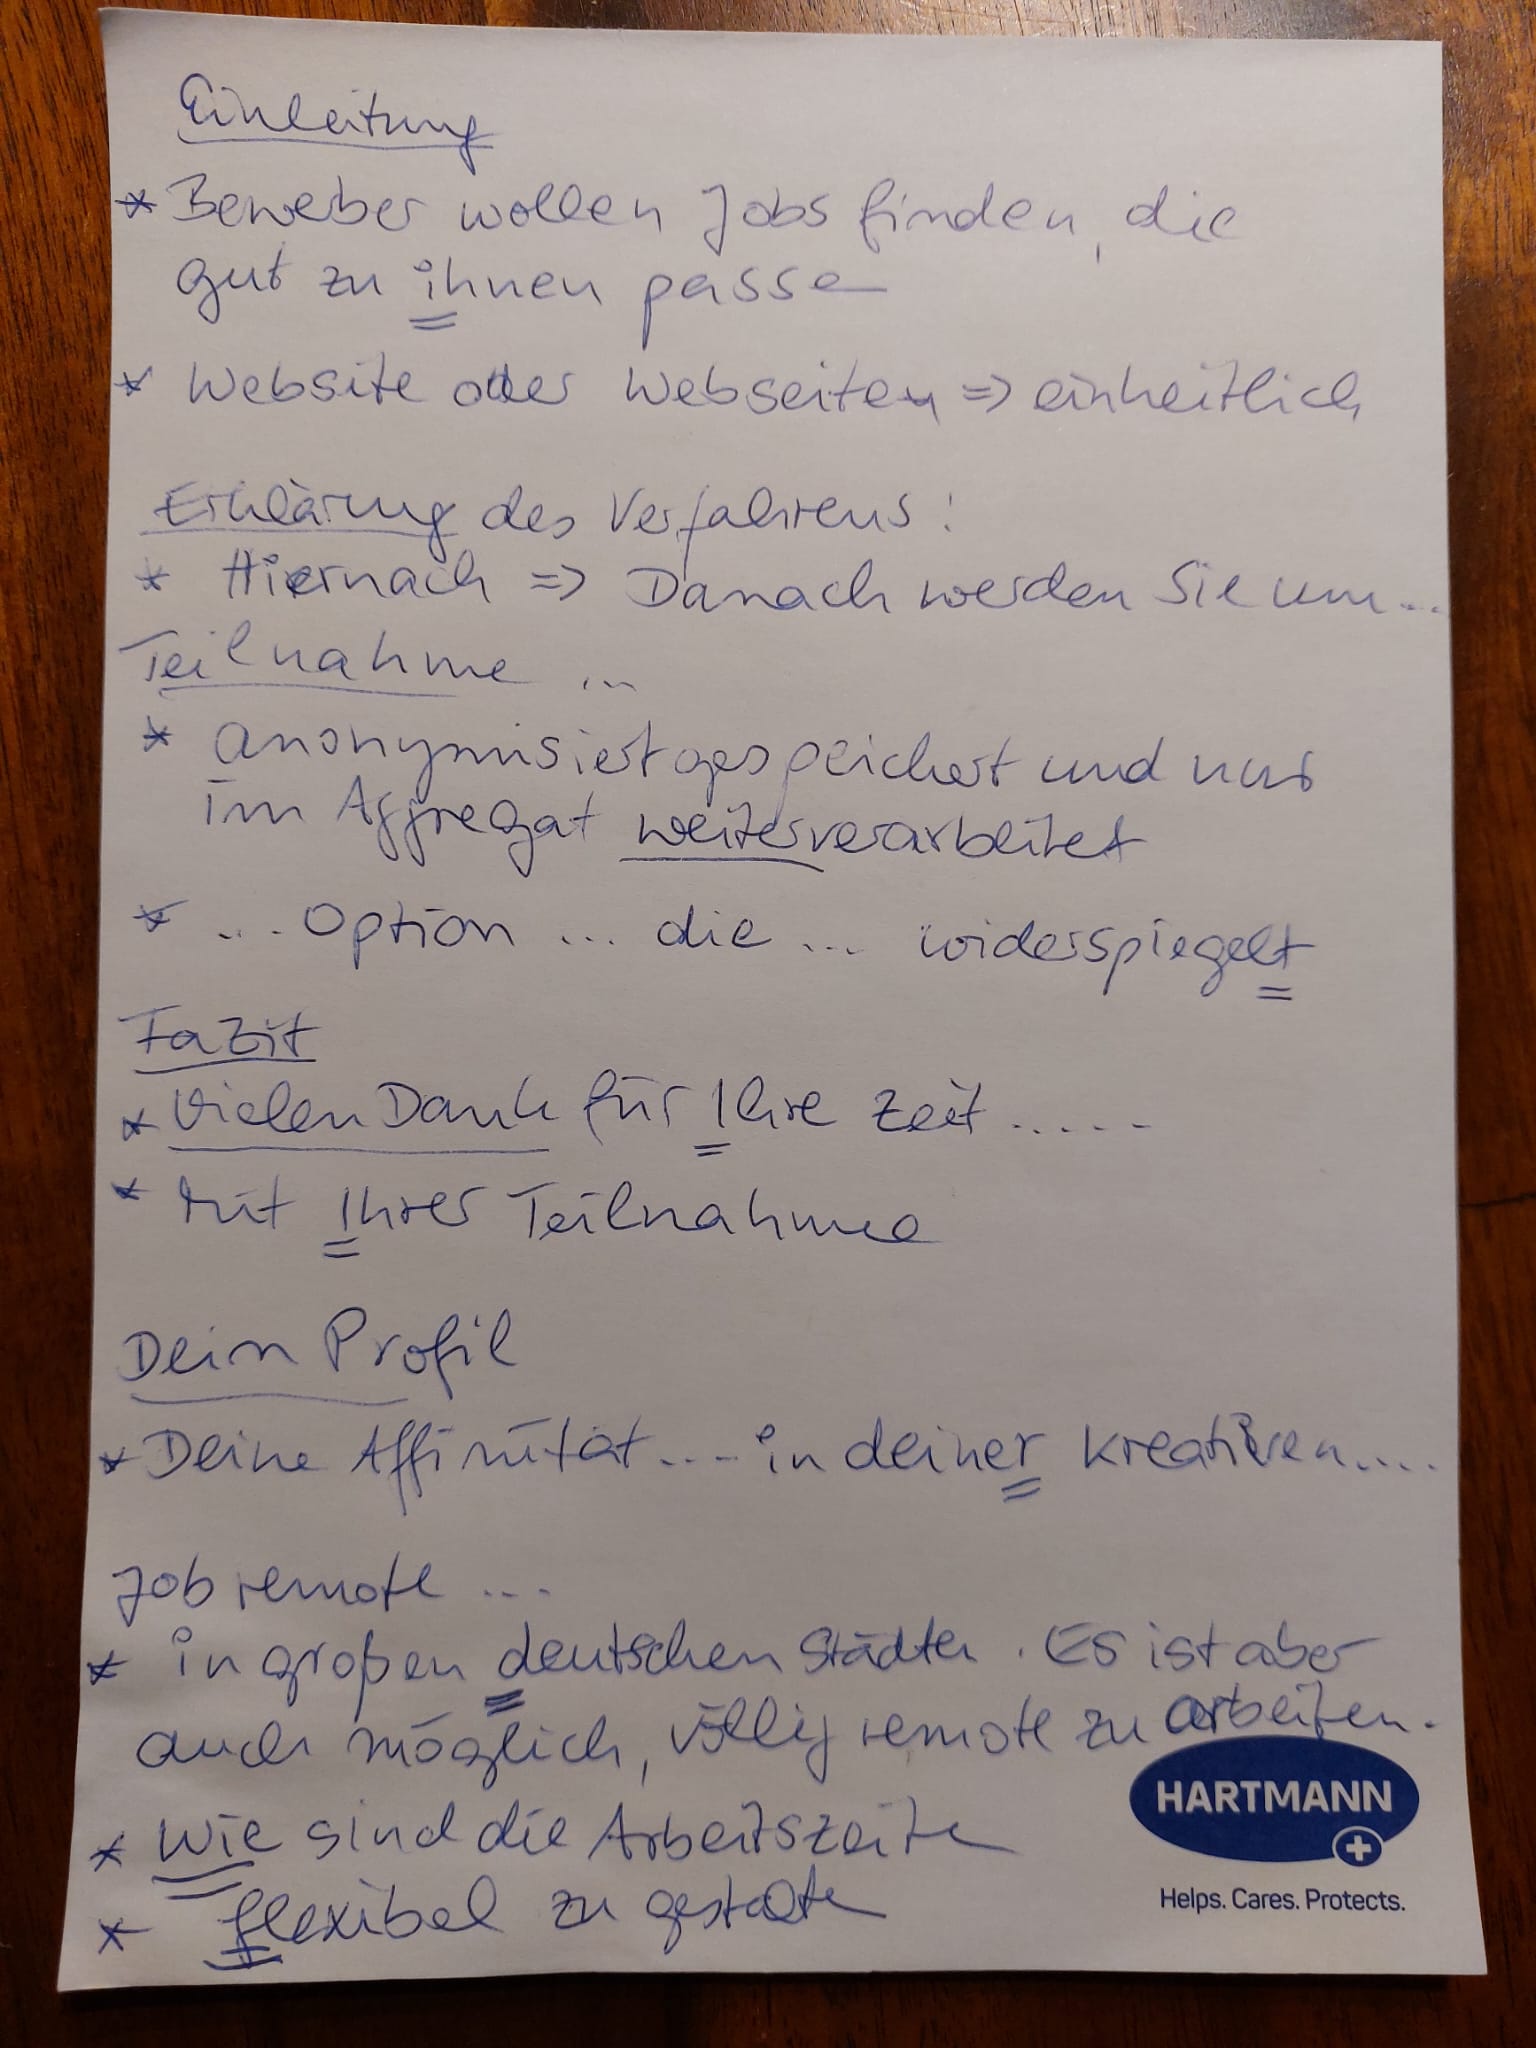 Einleitung
* Bewerber wollen Jobs finden, die
gut zu ihnen passen
* Website oder Webseiten => einheitlich
Erklärung des Verfahrens:
* Hiernach => Danach werden Sie um...
Teilnahme ...
* anonymisiert gespeichert und nur
im Aggregat weiterverarbeitet
* ... Option ... die ... widerspiegelt
Fazit
* Vielen Dank für Ihre Zeit .....
* Mit Ihrer Teilnahme
Dein Profil
* Deine Affinität .... in deiner kreativen....
Job remote ...
* in großen deutschen Städten. Es ist aber
auch möglich, völlig remote zu arbeiten.
* Wie sind die Arbeitszeiten
* flexibel zu gestalten
HARTMANN
Helps. Cares. Protects.